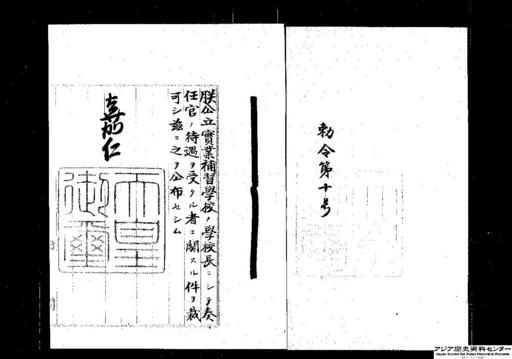 勅令第十号
朕公立實業補習學校ノ學校長ニシテ奏
任官ノ待遇ヲ受クル者ニ關スル件ヲ裁
可シ茲ニ之ヲ公布セシム
嘉仁
天皇
御璽
アジア歴史資料センター
Japan Center for Asian Historical Records